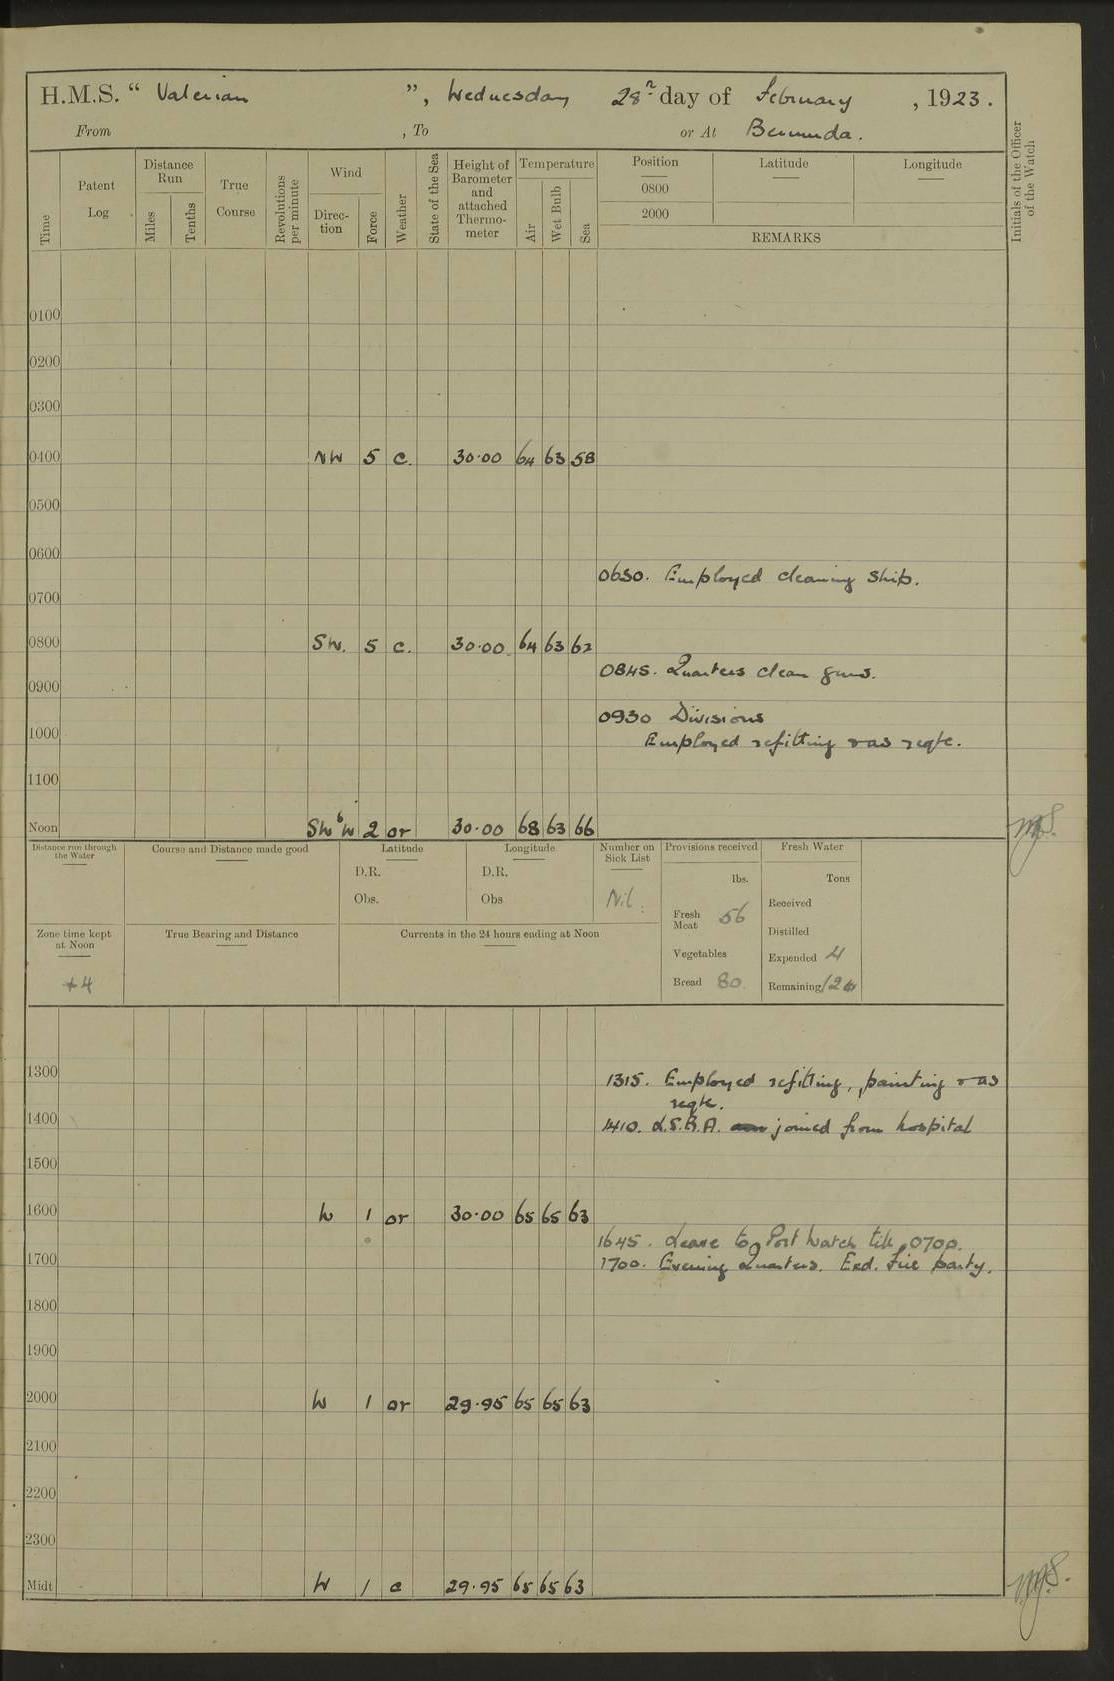 H.M.S. “ Valerian ”, Wednesday 28th day of February , 1923.
From , To or At Bermuda.
Time
Patent Log
Distance Run
Miles
Tenths
True Course
Revolutions per minute
Wind
Direc-tion
Force
Weather
State of the Sea
Height of Barometer and attached Thermo-meter
Temperature
Air
Wet Bulb
Sea
Position
0800
2000
Latitude
Longitude
REMARKS
Initials of the Officer of the Watch
0100
0200
0300
0400 NW 5 c. 30·00 64 63 58
0500
0600
0630. Employed cleaning ship.
0700
0800 SW. 5 c. 30·00 64 63 62
0845. Quarters clean guns.
0900
0930 Divisions
1000 Employed refitting & as reqte.
1100
Noon SWbW 2 or 30·00 68 63 66
Distance run through the Water
Course and Distance made good
Latitude
D.R.
Obs.
Longitude
D.R.
Obs
Number on Sick List
Nil.
Provisions received
lbs.
Fresh Meat 56
Vegetables
Bread 80
Fresh Water
Tons
Received
Distilled
Expended 4
Remaining
Zone time kept at Noon
+4
True Bearing and Distance
Currents in the 24 hours ending at Noon
1300
1315. Employed refitting, painting & as
reqte.
1400
1410. L.S.B.A. joined from hospital
1500
1600 W 1 or 30·00 65 65 63
1645. Leave to Port Watch till 0700.
1700 1700. Evening Quarters. Exd. Fire party.
1800
1900
2000 W 1 or 29·95 65 65 63
2100
2200
2300
Midt W 1 c 29·95 65 65 63